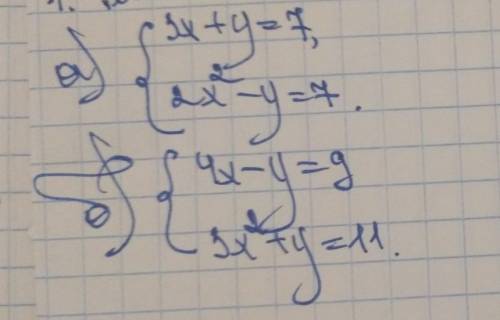 а) { 3x+y=7,
2x²-y=7.
б) { 4x-y=9
3x²+y=11.